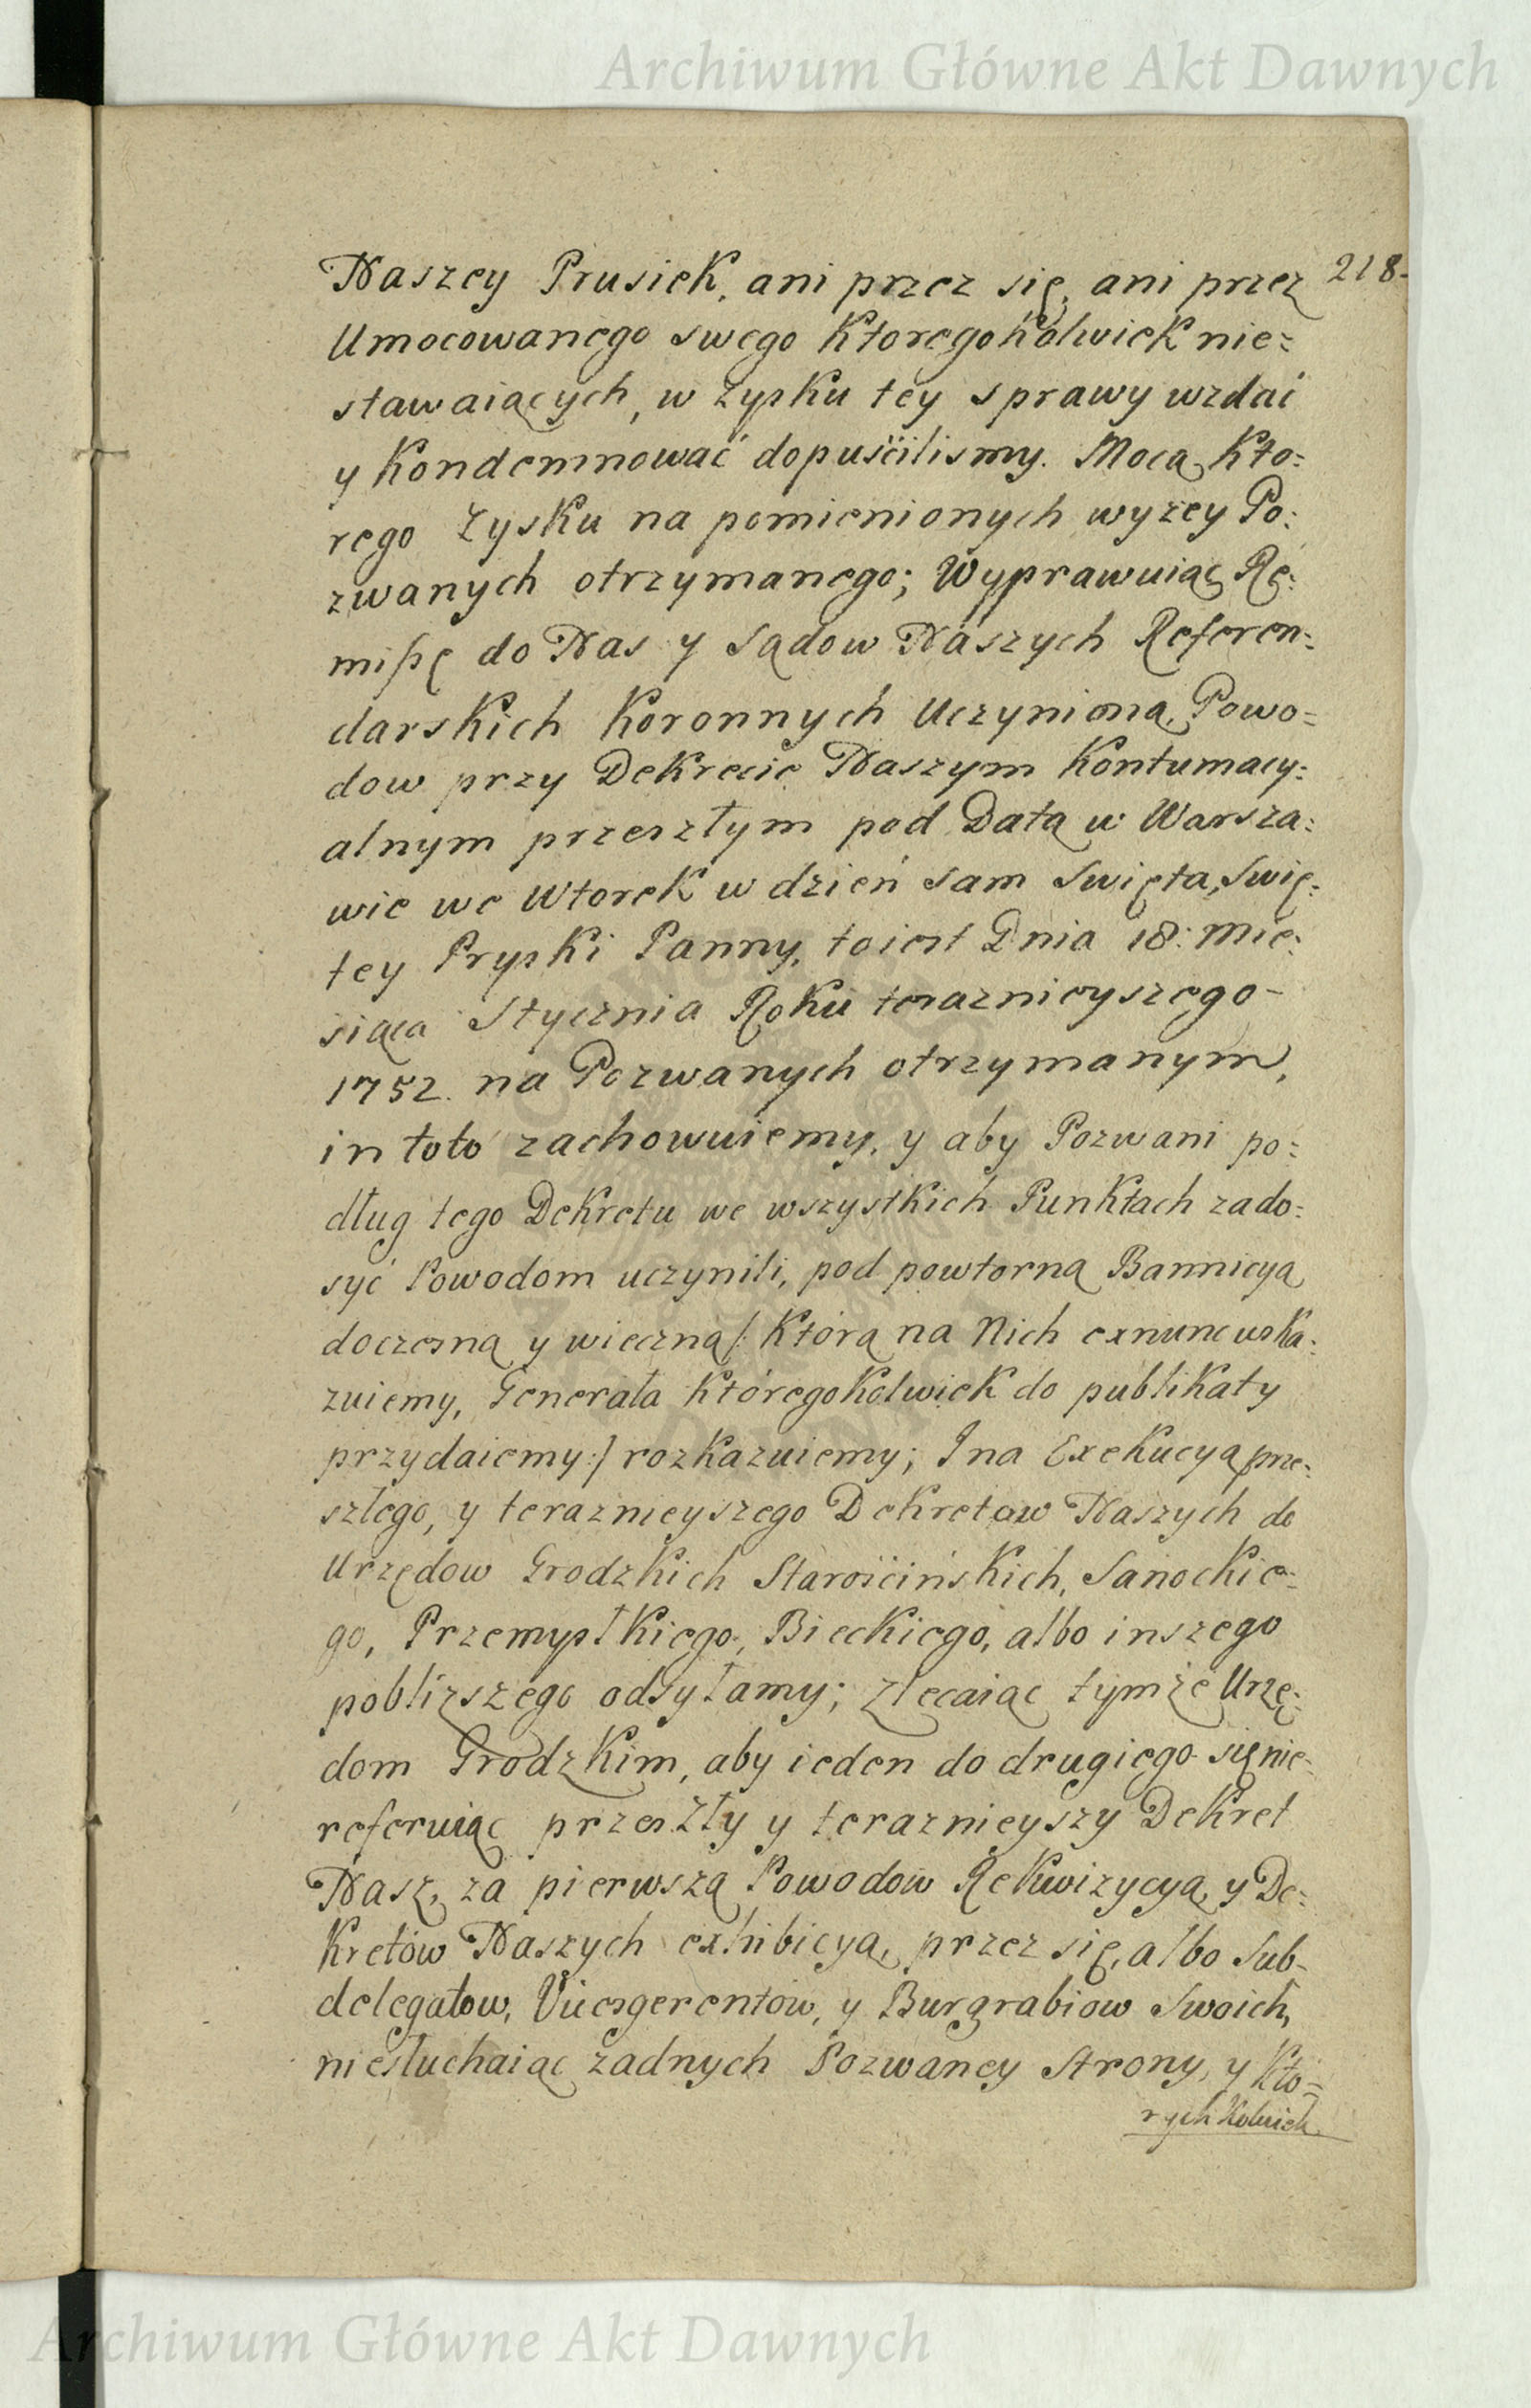 Archiwum Główne Akt Dawnych
218
Naszey Prusiek, ani przez się, ani przez
Umocowanego swego Ktoregokolwiek nie=
stawaiących, w zysku tey sprawy wzdać
y Kondemnować dopuścilismy. Mocą Kto=
rego Zysku na pomienionych wyzey Po=
zwanych otrzymanego; Wyprawuiąc Re=
mißę do Nas y Sądow Naszych Referen=
darskich Koronnych Uczynioną, Powo=
dow przy Dekrecie Naszym Kontumacy=
alnym przeszłym pod Datą w Warsza=
wie we Wtorek w dzień sam Swięta, Swię=
tey Pryski Panny, toiest Dnia 18: Mie=
siąca Stycznia Roku teraznieyszego-
1752. na Pozwanych otrzymanym,
in toto zachowuiemy, y aby Pozwani po=
dług tego Dekretu we wszystkich Punktach zado=
syć Powodom uczynili, pod powtorną Bannicyą
doczesną y wieczną /: Którą na Nich exnunc wska=
zuiemy, Generała Któregokolwiek do publikaty
przydaiemy :/ rozkazuiemy; I na Exekucyą prze=
szłego, y teraznieyszego Dekretow Naszych do
Urzędow Grodzkich Starościńskich, Sanockie=
go, Przemyslkiego, Bieckiego, albo inszego
pobliższego odsyłamy; zlecaiąc tymże Urzę=
dom Grodzkim, aby ieden do drugiego się nie=
referuiąc przeszły y teraznieyszy Dekret
Nasz, za pierwszą Powodow Rekwizycyą, y De=
kretów Naszych exhibicyą, przez się, albo Sub-
delegatow, Vicesgerentow, y Burgrabiow Swoich,
niesłuchaiąc żadnych Pozwaney Strony, y Kto=
rychkolwiek
Archiwum Główne Akt Dawnych